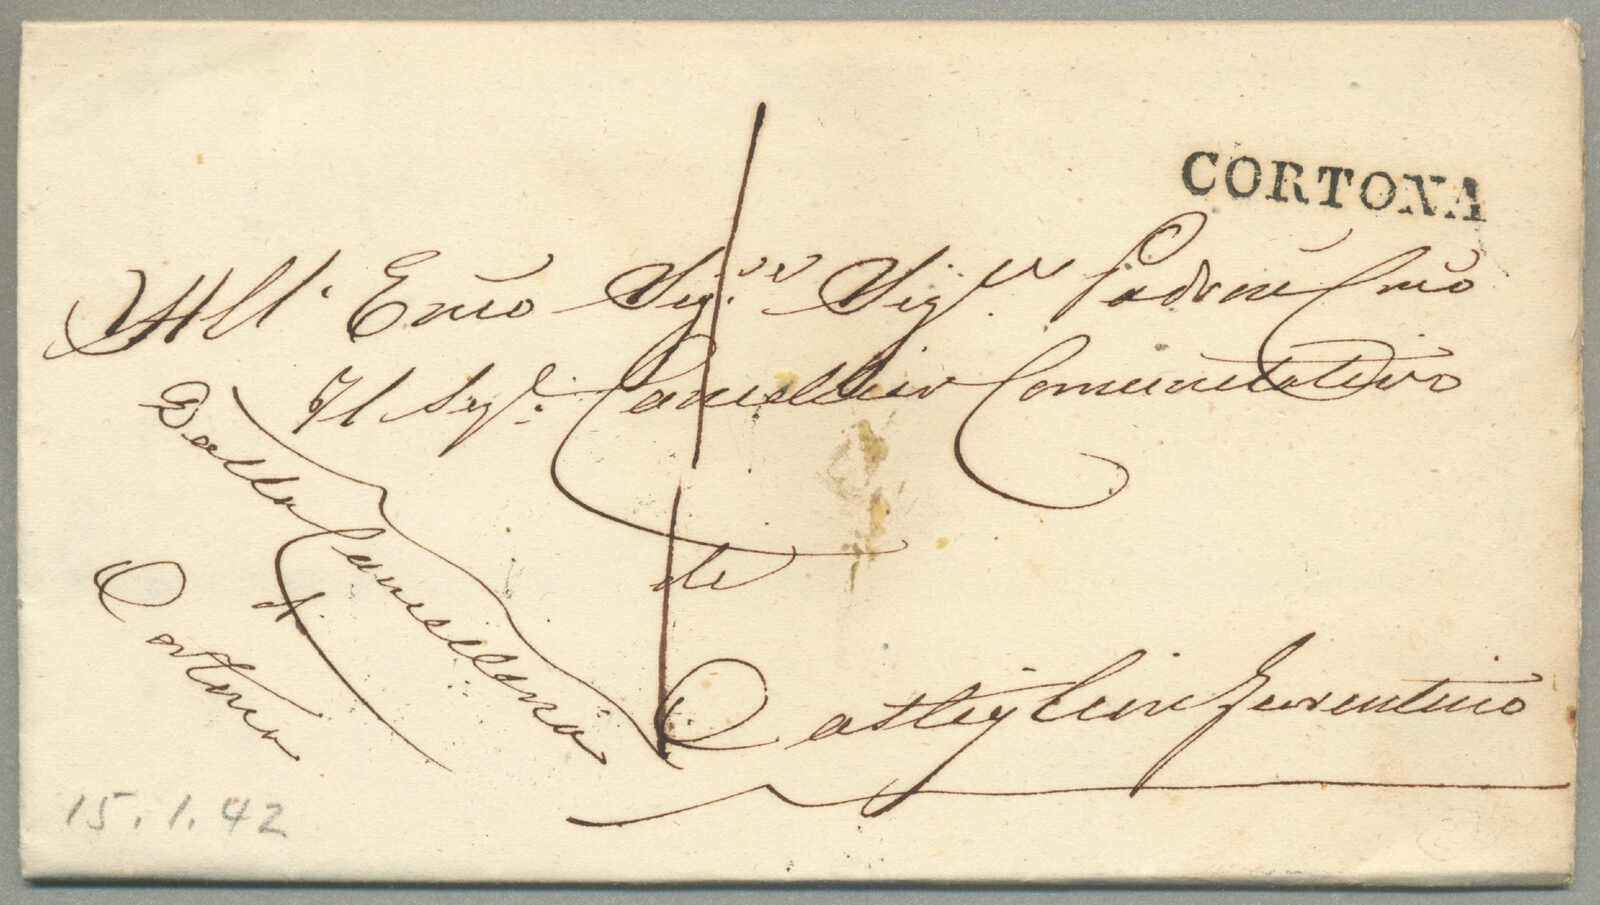 CORTONA
All'. Ecmo Sigre. Sigre. Padrone Cmo
Il Sigr. Cancelliere Comunitativo
di
Castiglion Fiorentino
Dalla Cancelleria
di
Cortona
15.1.42